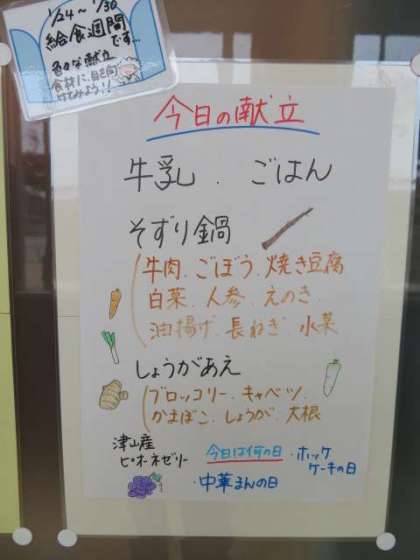 1/24～1/30
給食週間
です。
色々な献立
食材に、目を向
けてみよう!!
今日の献立
牛乳 . ごはん
そずり鍋
牛肉. ごぼう. 焼き豆腐
白菜. 人参. えのき.
油揚げ. 長ねぎ. 水菜
しょうがあえ
ブロッコリー. キャベツ.
かまぼこ. しょうが. 大根
津山産
ピオーネゼリー
今日は何の日
・ホット
ケーキの日
・中華まんの日